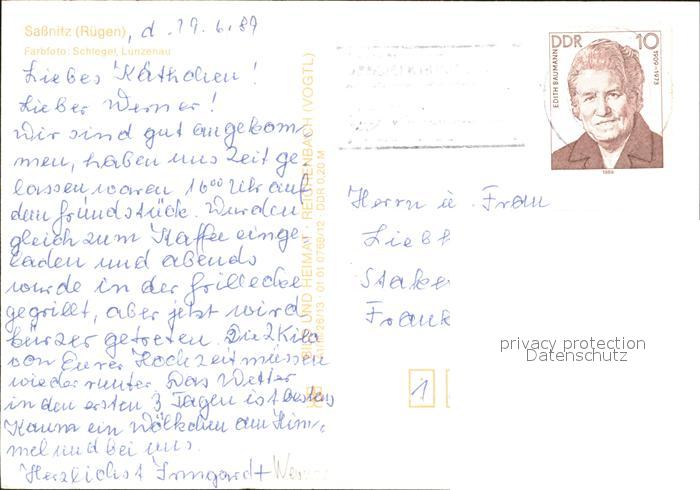 Saßnitz (Rügen), d. 19.6.89
Farbfoto: Schlegel, Lunzenau
Liebes Käthchen!
Lieber Werner!
Wir sind gut angekom-
men, haben uns Zeit ge-
lassen waren 16⁰⁰ Uhr auf
dem Grundstück. Wurden
gleich zum Kaffee einge-
laden und abends
wurde in der Grillecke
gegrillt, aber jetzt wird
kürzer getreten. Die 2 Kilo
von Eurer Hochzeit müssen
wieder runter. Das Wetter
in den ersten 3 Tagen ist bestens
Kaum ein Wölkchen am Him-
mel und bei uns.
Herzlichst Irmgard + Werner
BILD UND HEIMAT REICHENBACH (VOGTL)
01 01 0769/12 DDR 0,20 M
DDR 10
EDITH BAUMANN
1909-1973
1989
Herrn u. Frau
Liebh
Stake
Frank
privacy protection
Datenschutz
1